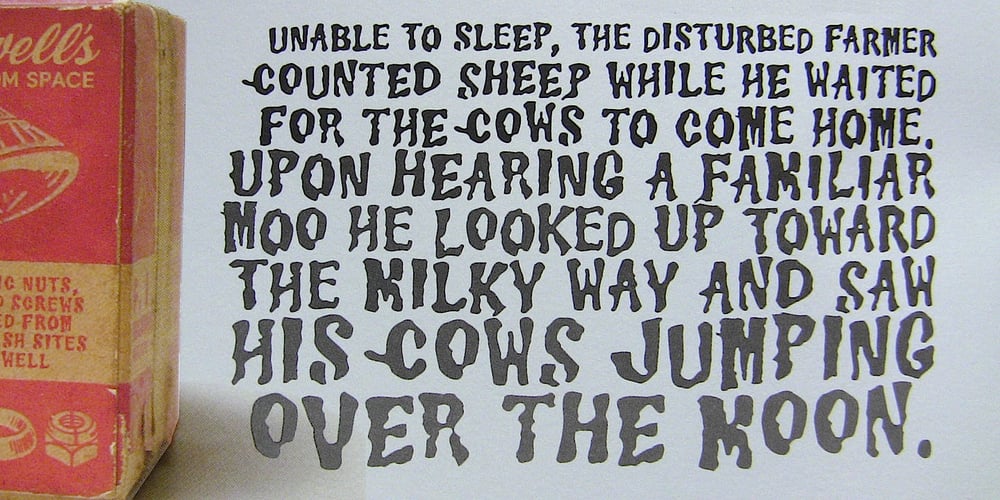 well's
M SPACE
C NUTS,
SCREWS
ED FROM
SH SITES
WELL
UNABLE TO SLEEP, THE DISTURBED FARMER
COUNTED SHEEP WHILE HE WAITED
FOR THE COWS TO COME HOME.
UPON HEARING A FAMILIAR
MOO HE LOOKED UP TOWARD
THE MILKY WAY AND SAW
HIS COWS JUMPING
OVER THE MOON.